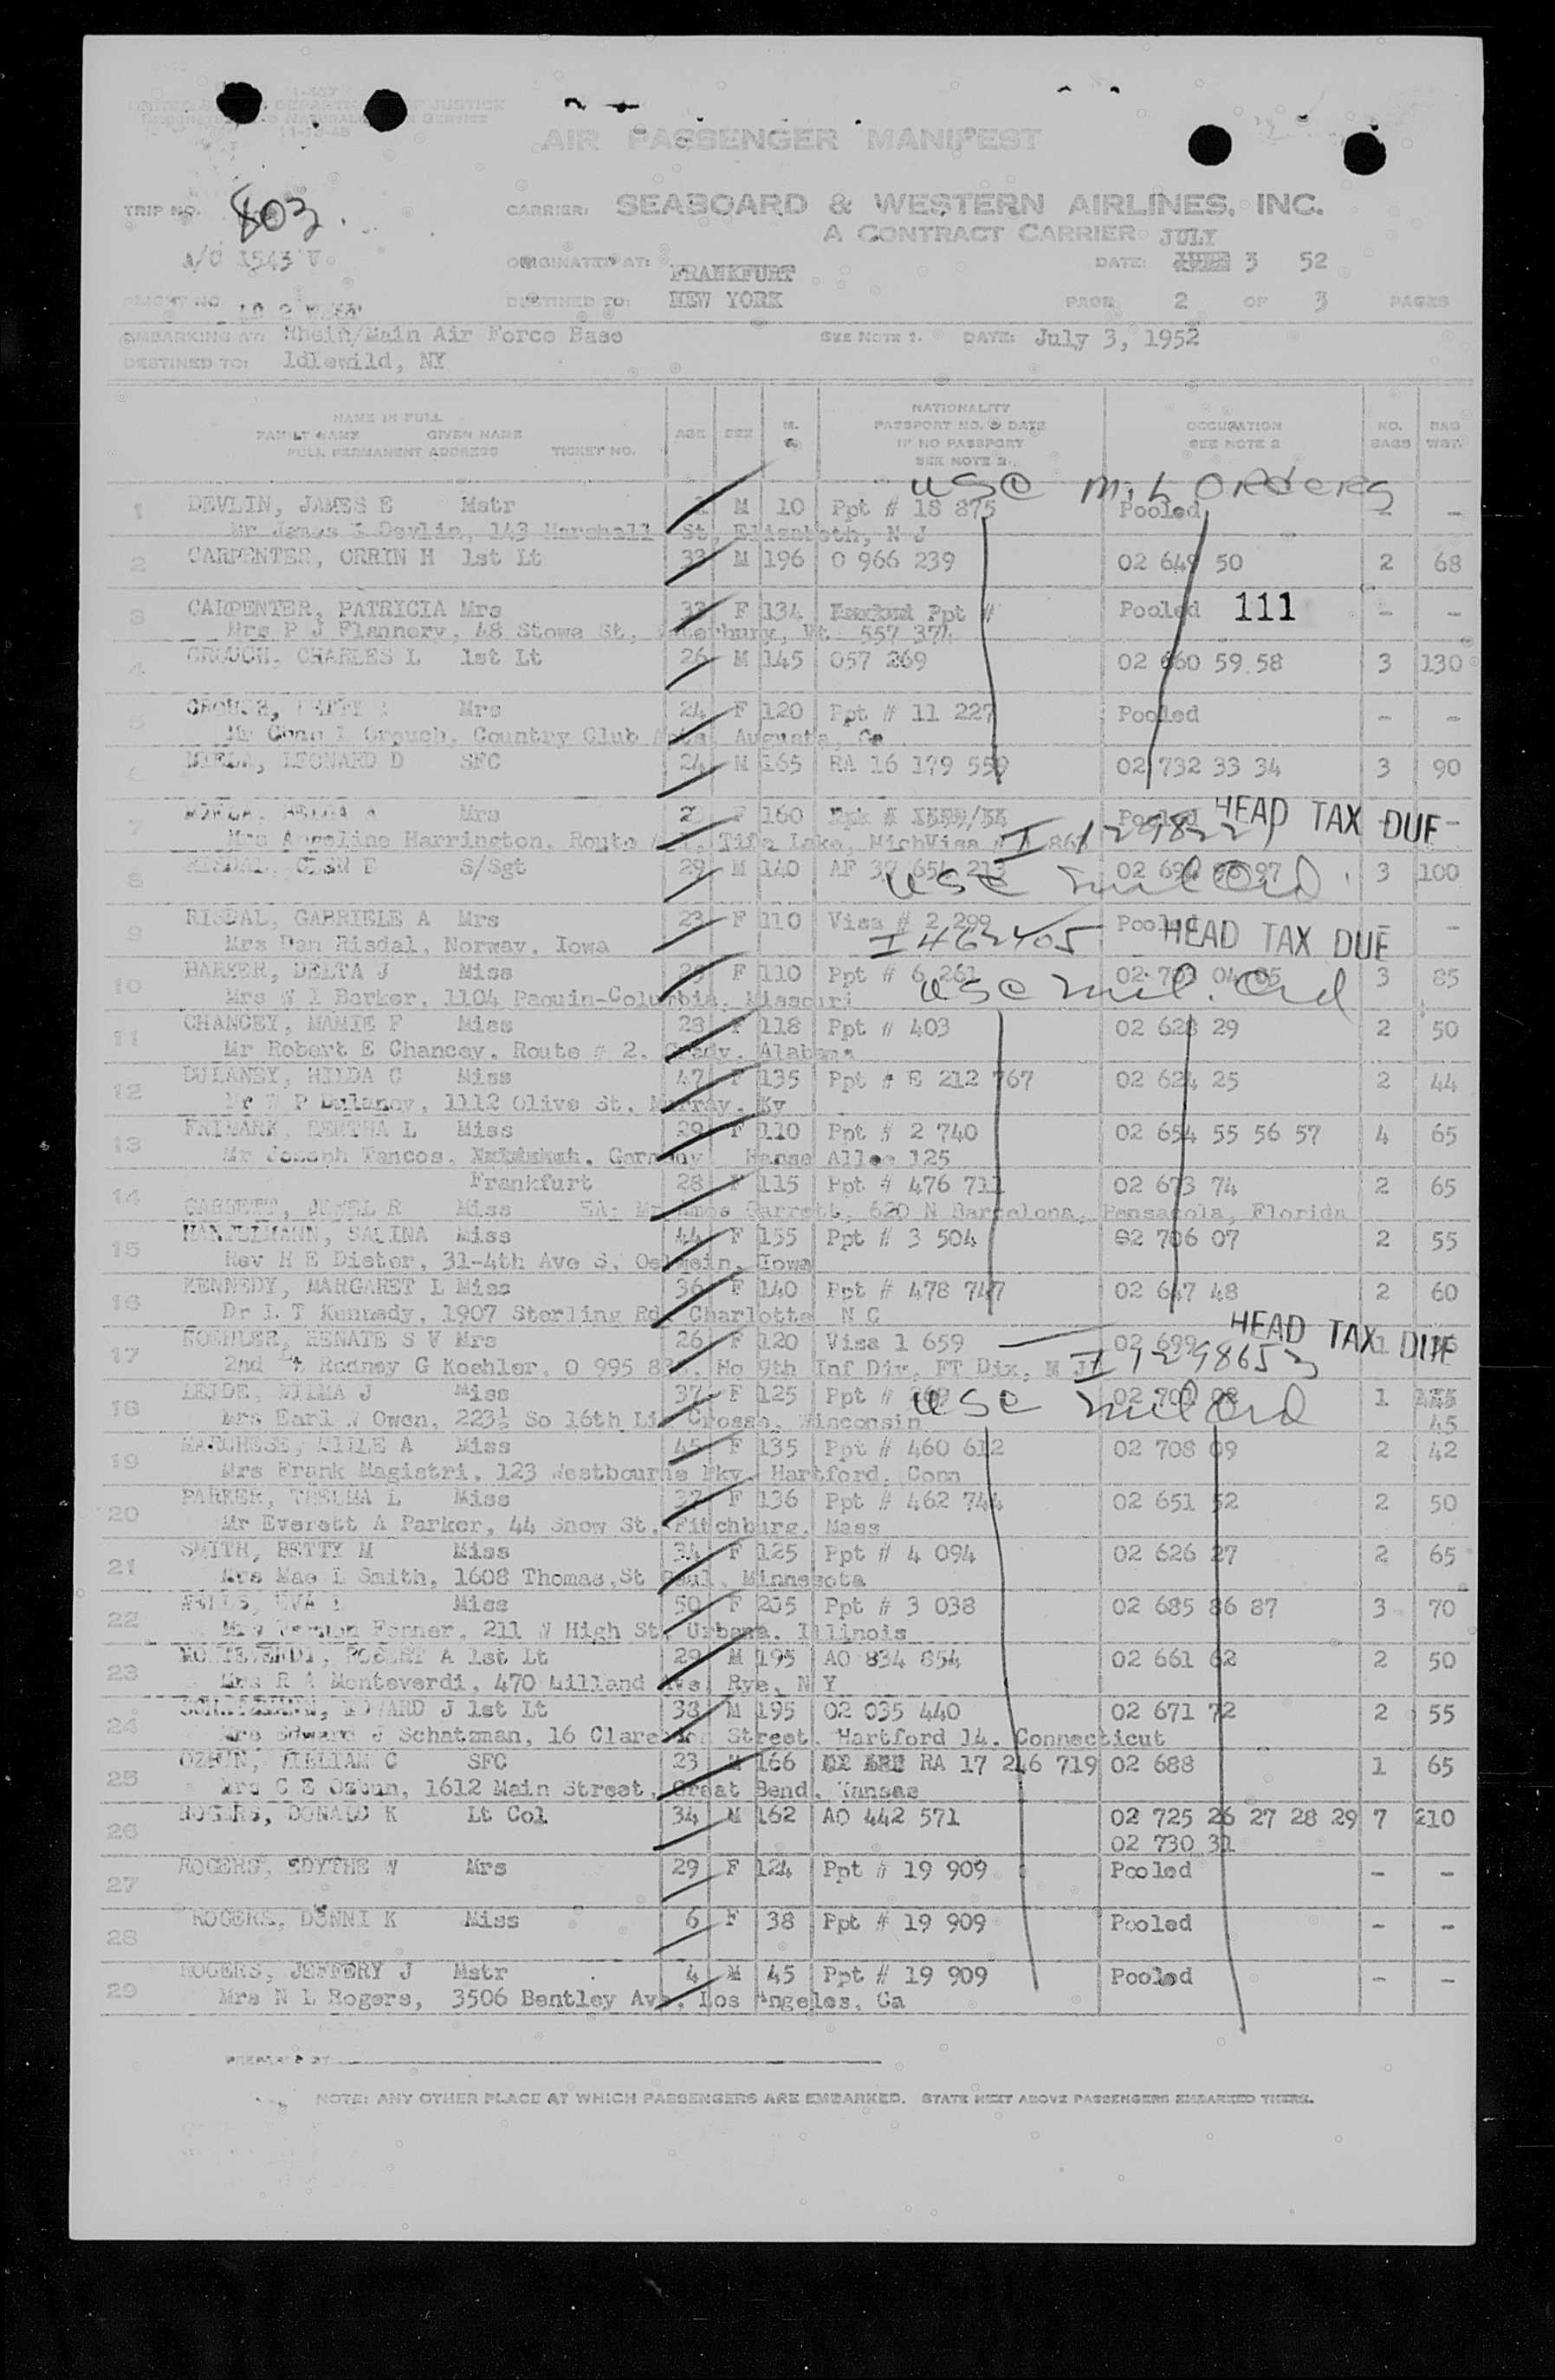 I-457
UNITED STATES DEPARTMENT OF JUSTICE
IMMIGRATION AND NATURALIZATION SERVICE
11-18-48
AIR PASSENGER MANIFEST
TRIP NO. 803. CARRIER: SEABOARD & WESTERN AIRLINES, INC.
A CONTRACT CARRIER JULY
A/C 1543 V ORIGINATED AT: FRANKFURT DATE: JUNE 3 52
FLIGHT NO DESTINED TO: NEW YORK PAGE 2 OF 3 PAGES
EMBARKING AT: Rhein/Main Air Force Base SEE NOTE 1. DATE: July 3, 1952
DESTINED TO: Idlewild, NY
NAME IN FULL
FAMILY NAME GIVEN NAME
FULL PERMANENT ADDRESS TICKET NO.
AGE SEX
NATIONALITY
PASSPORT NO. & DATE
IF NO PASSPORT
SEE NOTE 2
OCCUPATION
SEE NOTE 2
NO. BAGS
BAG WGT.
USC Mil Orders
1 DEVLIN, JAMES E Mstr M 10 Ppt # 18 875 Pooled - -
Mr James E Devlin, 143 Marshall St, Elizabeth, N J
2 CARPENTER, ORRIN H 1st Lt 33 M 196 O 966 239 02 649 50 2 68
3 CARPENTER, PATRICIA Mrs 33 F 134 Ppt # Pooled 111 - -
Mrs P J Flannery, 48 Stowe St, Waterbury, Vt 557 374
4 CROUCH, CHARLES L 1st Lt 26 M 145 057 269 02 660 59 58 3 130
5 CROUCH, Mrs 24 F 120 Ppt # 11 227 Pooled - -
Mr Conn L Crouch, Country Club Apts, Augusta, Ga
6 MIELA, LEONARD D SFC 24 M 165 RA 16 179 559 02 732 33 34 3 90
7 Mrs F 160 Pooled HEAD TAX DUE -
Mrs Angeline Harrington, Route # 1, Tifa Lake, Mich Visa #
8 RISDAL, S/Sgt 29 M 140 3 100
USC Mil Ord
9 RISDAL, GABRIELE A Mrs 23 F 110 Visa # 2 299 Pooled HEAD TAX DUE -
Mrs Dan Risdal, Norway, Iowa I 462405
10 BARKER, DELTA J Miss F 110 Ppt # 6 261 3 85
Mrs W I Barker, 1104 Paquin-Columbia, Missouri USC Mil. Ord
11 CHANCEY, MAMIE F Miss 28 F 118 Ppt # 403 02 628 29 2 50
Mr Robert E Chancey, Route # 2, Grady, Alabama
12 DULANEY, HILDA C Miss 47 F 135 Ppt # E 212 767 02 624 25 2 44
Mr W P Dulaney, 1112 Olive St, Murray, Ky
13 FRIMARK, BERTHA L Miss 29 F 110 Ppt # 2 740 02 654 55 56 57 4 65
Mr Joseph Tancos, Germany Hansa Allee 125
Frankfurt
14 28 F 115 Ppt # 476 711 02 673 74 2 65
GARRETT, JEWEL R Miss EA: Mr Amos Garrett, 620 N Barcelona, Pensacola, Florida
15 SALINA Miss 44 F 155 Ppt # 3 504 02 706 07 2 55
Rev H E Dieter, 31-4th Ave S, Oelwein, Iowa
16 KENNEDY, MARGARET L Miss 36 F 140 Ppt # 478 747 02 647 48 2 60
Dr L T Kennedy, 1907 Sterling Rd, Charlotte N C
17 KOEHLER, RENATE S V Mrs 26 F 120 Visa 1 659 02 699 HEAD TAX DUE 1
2nd Lt Rodney G Koehler, O 995 Hq 9th Inf Div, FT Dix, N J
18 LEIDE, WILMA J Miss 37 F 125 Ppt # USC Mil Ord 1
Mrs Earl W Owen, 223½ So 16th La Crosse, Wisconsin 45
19 MARCHESE, MILLE A Miss 45 F 135 Ppt # 460 612 02 708 09 2 42
Mrs Frank Magistri, 123 Westbourne Pky, Hartford, Conn
20 PARKER, THELMA L Miss 37 F 136 Ppt # 462 744 02 651 52 2 50
Mr Everett A Parker, 44 Snow St, Fitchburg, Mass
21 SMITH, BETTY M Miss 34 F 125 Ppt # 4 094 02 626 27 2 65
Mrs Mae L Smith, 1608 Thomas, St Paul, Minnesota
22 WELLS, EVA L Miss 50 F 205 Ppt # 3 038 02 685 86 87 3 70
Mrs Vernon Fenner, 211 W High St, Urbana, Illinois
23 MONTEVERDI, ROBERT A 1st Lt 29 M 195 AO 834 854 02 661 62 2 50
Mrs R A Monteverdi, 470 Milland Ave, Rye, N Y
24 SCHATZMANN, EDWARD J 1st Lt 38 M 195 02 035 440 02 671 72 2 55
Mrs Edward J Schatzman, 16 Clarendon Street, Hartford 14, Connecticut
25 OZBUN, WILLIAM C SFC 23 M 166 RA 17 246 719 02 688 1 65
Mrs C E Ozbun, 1612 Main Street, Great Bend, Kansas
26 ROGERS, DONALD K Lt Col 34 M 162 AO 442 571 02 725 26 27 28 29 7 210
02 730 31
27 ROGERS, EDYTHE W Mrs 29 F 124 Ppt # 19 909 Pooled - -
28 ROGERS, DONNI K Miss 6 F 38 Ppt # 19 909 Pooled - -
29 ROGERS, JEFFERY J Mstr 4 M 45 Ppt # 19 909 Pooled - -
Mrs N L Rogers, 3506 Bentley Ave, Los Angeles, Ca
PREPARED BY
NOTE: ANY OTHER PLACE AT WHICH PASSENGERS ARE EMBARKED. STATE NEXT ABOVE PASSENGERS EMBARKED THERE.